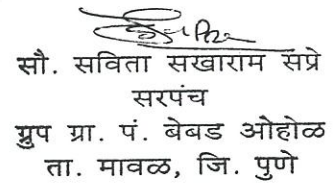 सौ. सविता सखाराम सप्रे
सरपंच
ग्रुप ग्रा. पं. बेबड ओहोळ
ता. मावळ, जि. पुणे